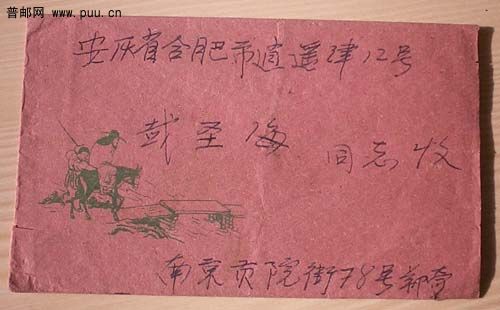 普邮网
www.puu.cn
安灰省合肥市逍遥津12号
圣
同志收
南京贡院街78号